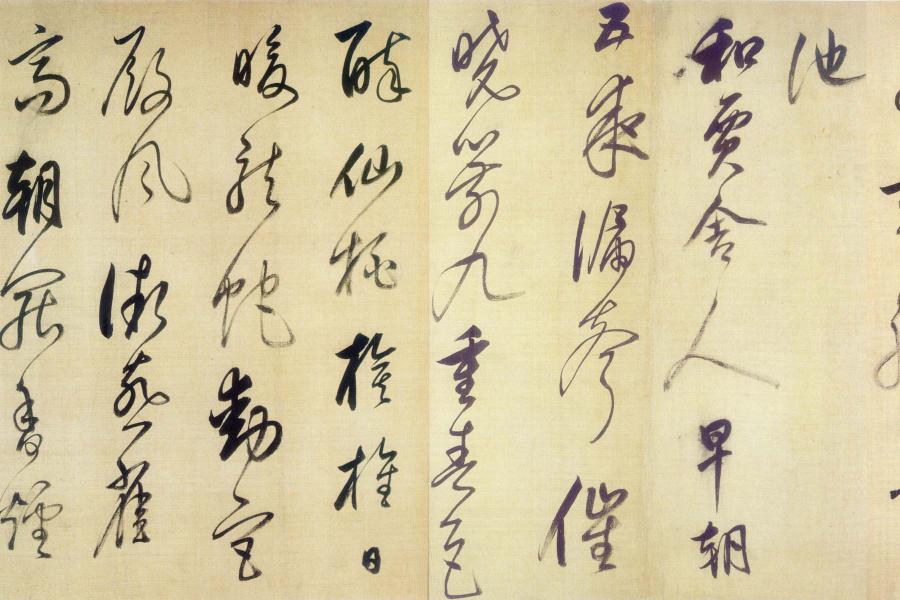 池
和賈舍人早朝
五夜漏聲催
曉箭九重春色
醉仙桃旌旗日
暖龍蛇動宮
殿風微燕雀
高朝罷香煙